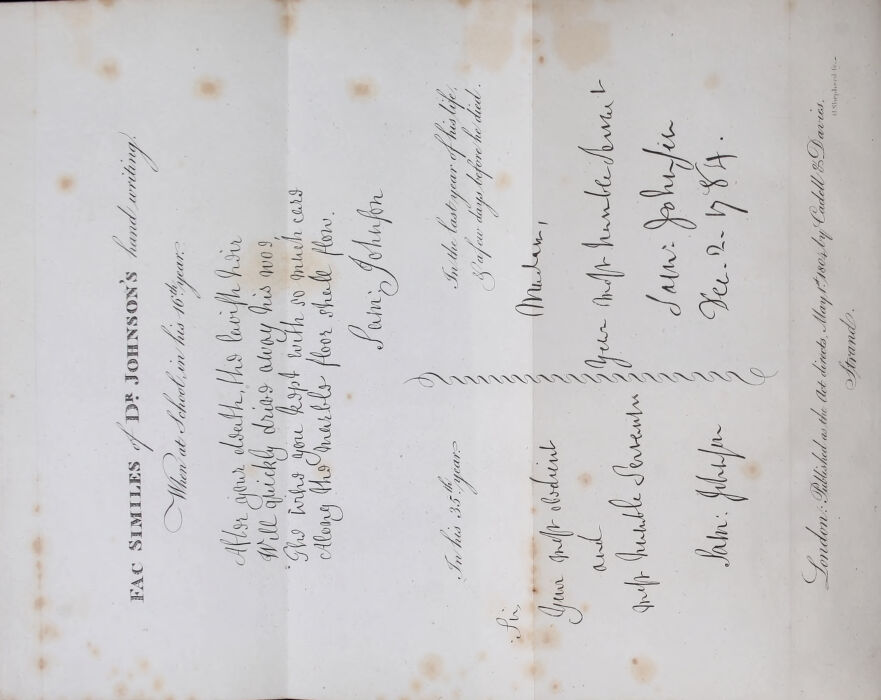 FAC SIMILES of DR. JOHNSON'S hand writing.
When at School, in his 16th year.
After your death, the lavish heir
Will quickly drive away his woe,
The wine you kept with so much care
Along the marble floor shall flow.
Sam: Johnson
In his 35th year.
Sir
Your most obedient
and
most humble Servant
Sam: Johnson
In the last year of his life,
& a few days before he died.
Madam,
Your most humble Servant
Sam: Johnson
Dec. 2. 1784.
London: Published as the Act directs, May 1st 1804, by Cadell & Davies,
Strand.